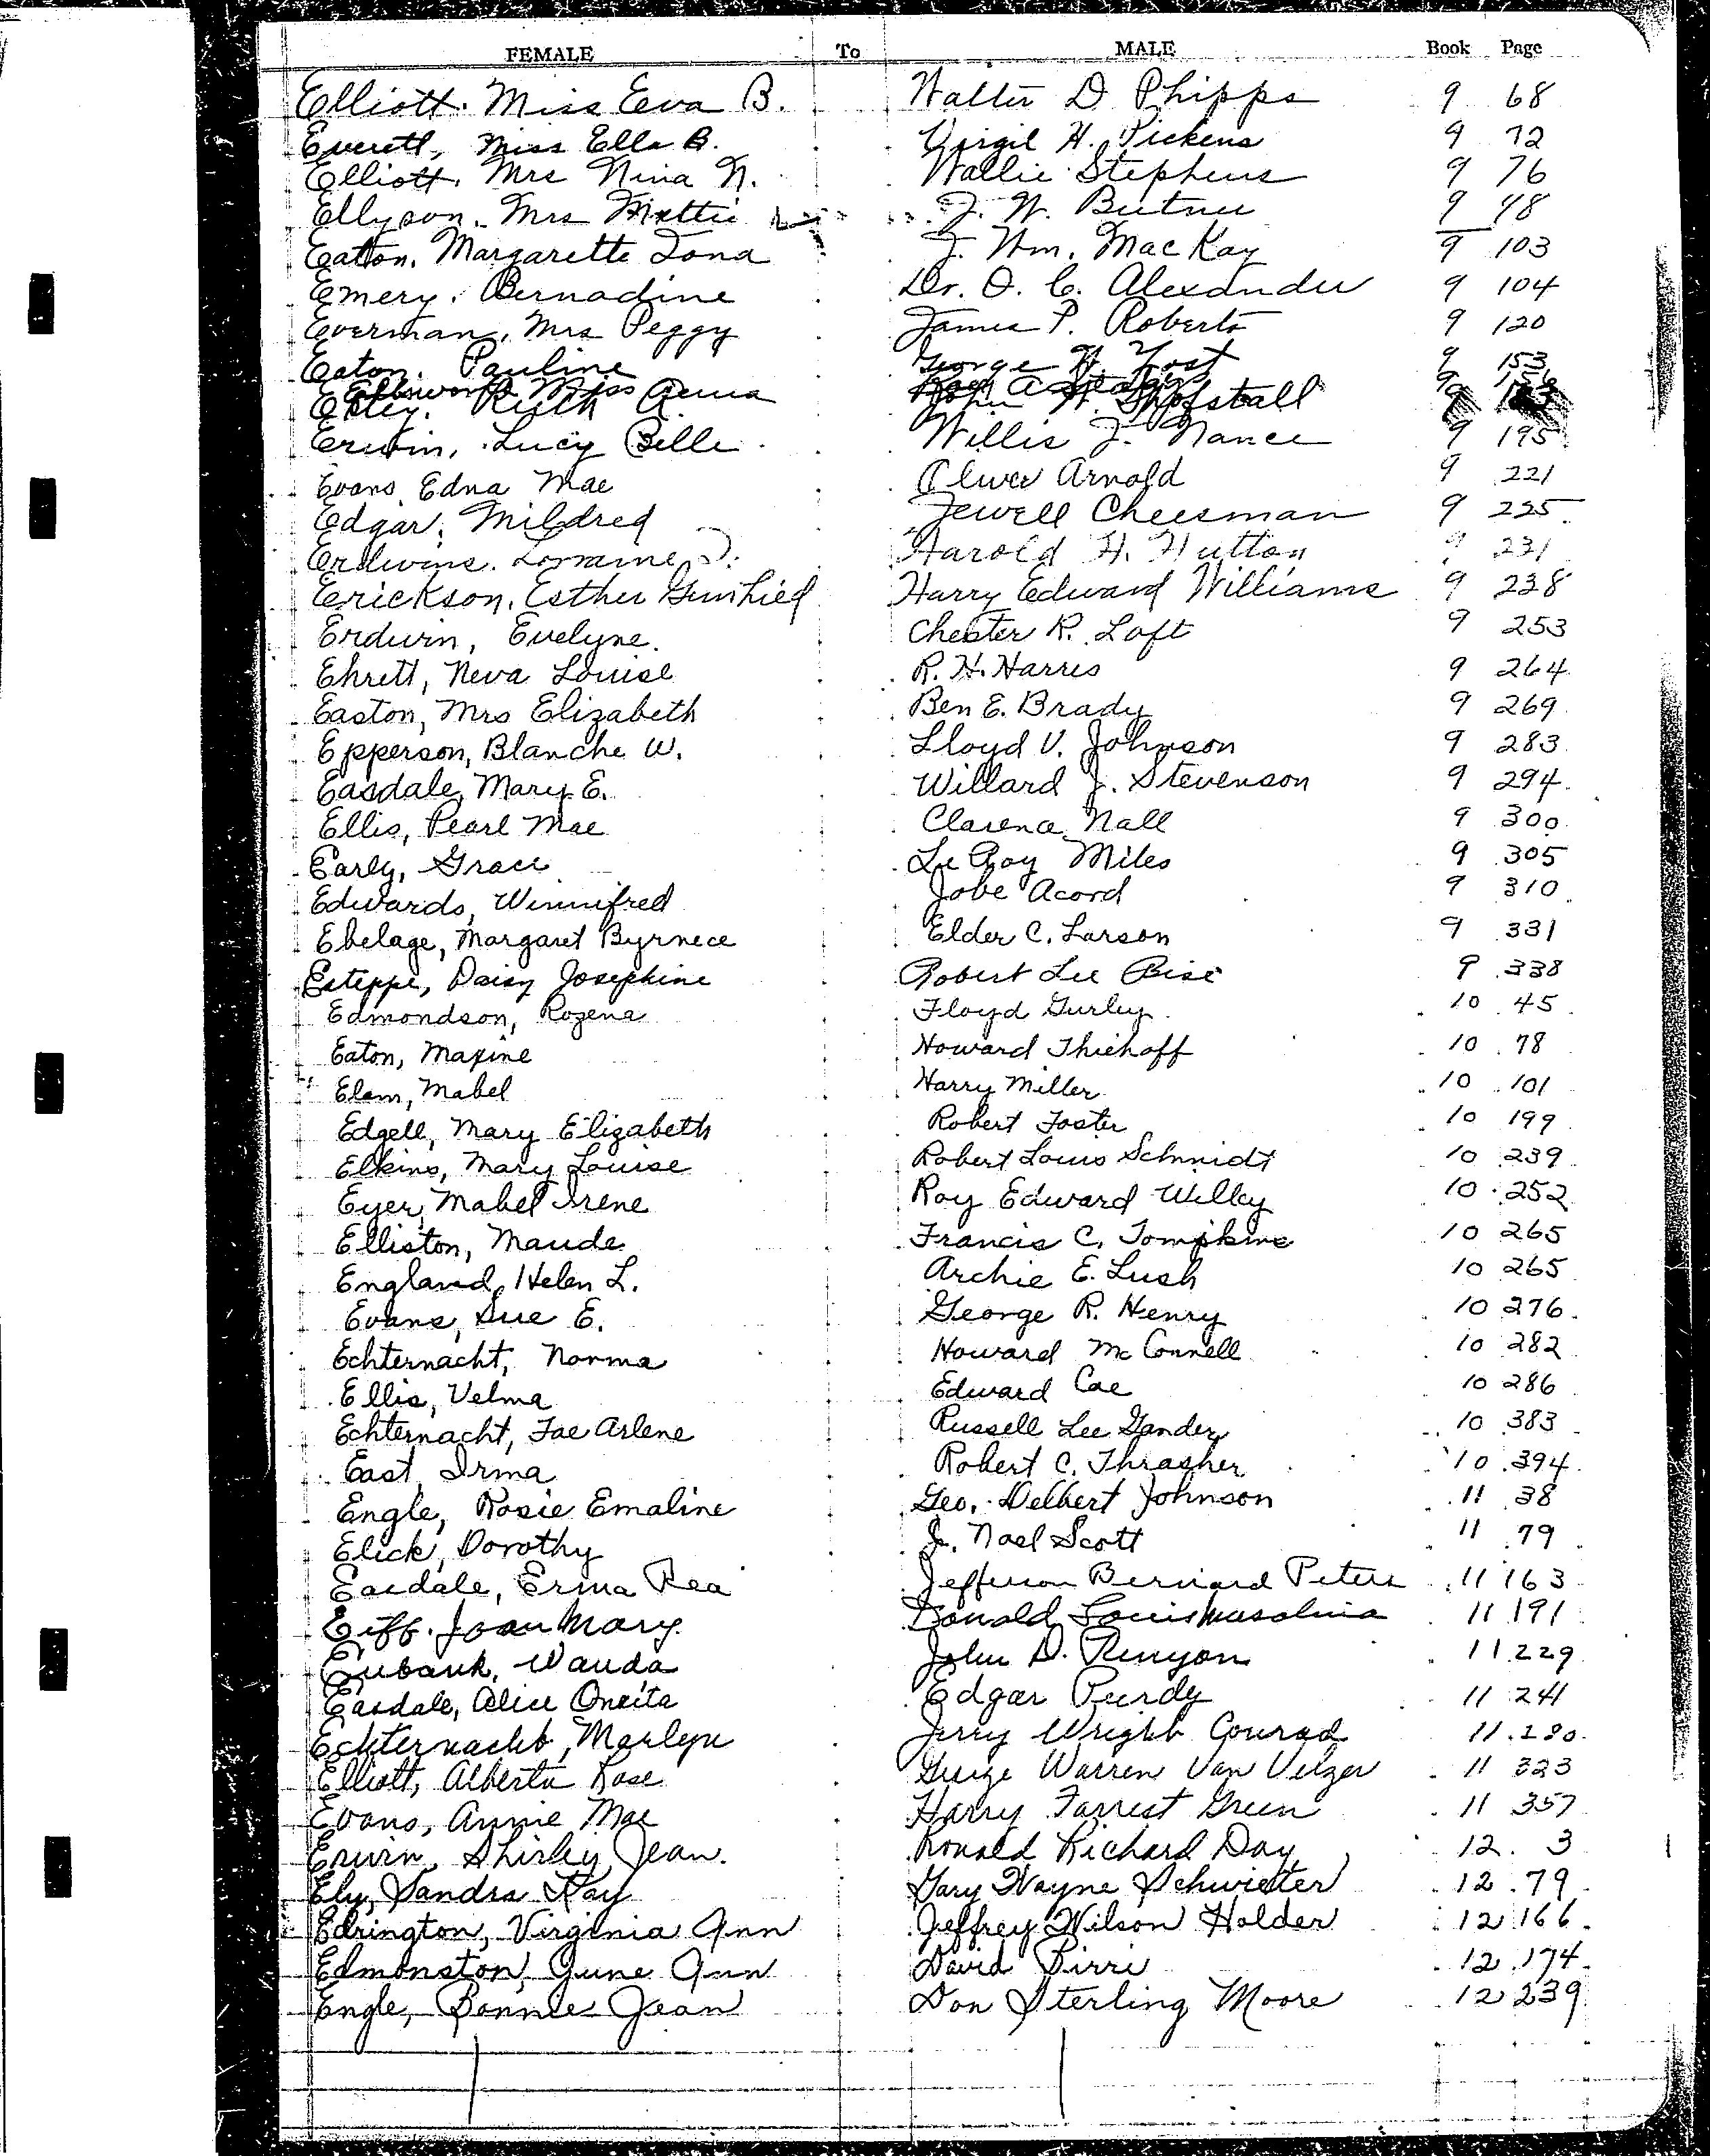 FEMALE To MALE Book Page
Elliott. Miss Eva B. Walter D Phipps 9 68
Everett, Miss Ella B. Virgil H. Pickens 9 72
Elliott. Mrs Nina N. Wallie Stephens 9 76
Ellyson. Mrs Mattie J. W. Butner 9 98
Eatton. Margarette Iona J. Wm. MacKay 9 103
Emery. Bernadine Dr. O. C. Alexander 9 104
Everman, Mrs Peggy James P. Roberts 9 120
Eaton. Pauline George W. Yost 9 153
Ellsworth Miss Anna Roy A 9
Exley. Ruth A. John W. 9
Erwin, Lucy Belle Willis J. Nance 9 195
Evans, Edna Mae Oliver Arnold 9 221
Edgar, Mildred Jewell Cheesman 9 225
Erdwins. Lorraine Harold H. Hutton 9 231
Erickson. Esther Harry Edward Williams 9 238
Erdwin, Evelyne. Chester R. Loft 9 253
Ehrett, Neva Louise R. H. Harris 9 264
Easton, Mrs Elizabeth Ben E. Brady 9 269
Epperson, Blanche W. Lloyd V. Johnson 9 283
Easdale, Mary E. Willard J. Stevenson 9 294
Ellis, Pearl Mae Clarence Nall 9 300
Early, Grace Le Roy Miles 9 305
Edwards, Winnifred Jobe Acord 9 310
Ebelage, Margaret Byrnece Elder C. Larson 9 331
Esteppe, Daisy Josephine Robert Lee Bise 9 338
Edmondson, Rozena Floyd Gurley 10 45
Eaton, Maxine Howard Thiehoff 10 78
Elam, Mabel Harry Miller 10 101
Edgell, Mary Elizabeth Robert Foster 10 199
Elkins, Mary Louise Robert Louis Schmidt 10 239
Eyer, Mabel Irene Roy Edward Willey 10 252
Elliston, Maude Francis C. Tompkins 10 265
England, Helen L. Archie E. Lush 10 265
Evans, Sue E. George R. Henry 10 276
Echternacht, Norma Howard McConnell 10 282
Ellis, Velma Edward Coe 10 286
Echternacht, Fae Arlene Russell Lee Gander 10 383
East, Irma Robert C. Thrasher 10 394
Engle, Rosie Emaline Geo. Delbert Johnson 11 38
Elick, Dorothy J. Noel Scott 11 79
Easdale, Erma Rea Jefferson Bernard Peters 11 163
Eiff. Joan Mary. Donald Louis Musolina 11 191
Eubank, Wanda John D. Runyon 11 229
Easdale, Alice Oneita Edgar Purdy 11 241
Echternacht, Marlyn Jerry Wright Conrad 11 280
Elliott, Alberta Rose George Warren Van Velzer 11 323
Evans, Annie Mae Harry Farrest Green 11 357
Erwin, Shirley Jean. Ronald Richard Day 12 3
Ely, Sandra Kay Gary Wayne Schwieter 12 79
Edrington, Virginia Ann Jeffrey Wilson Holder 12 166
Edmonston, June Ann David Pirri 12 174
Engle, Bonnie Jean Don Sterling Moore 12 239